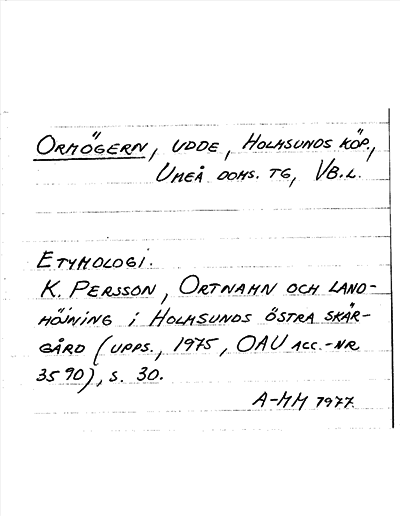 ORMÖGERN, UDDE, HOLMSUNDS KÖP.,
UMEÅ DOMS. TG, VB. L.
ETYMOLOGI.
K. PERSSON, ORTNAMN OCH LAND-
HÖJNING I HOLMSUNDS ÖSTRA SKÄR-
GÅRD (UPPS., 1975, OAU ACC.-NR
3590), S. 30.
A-MM 1977.